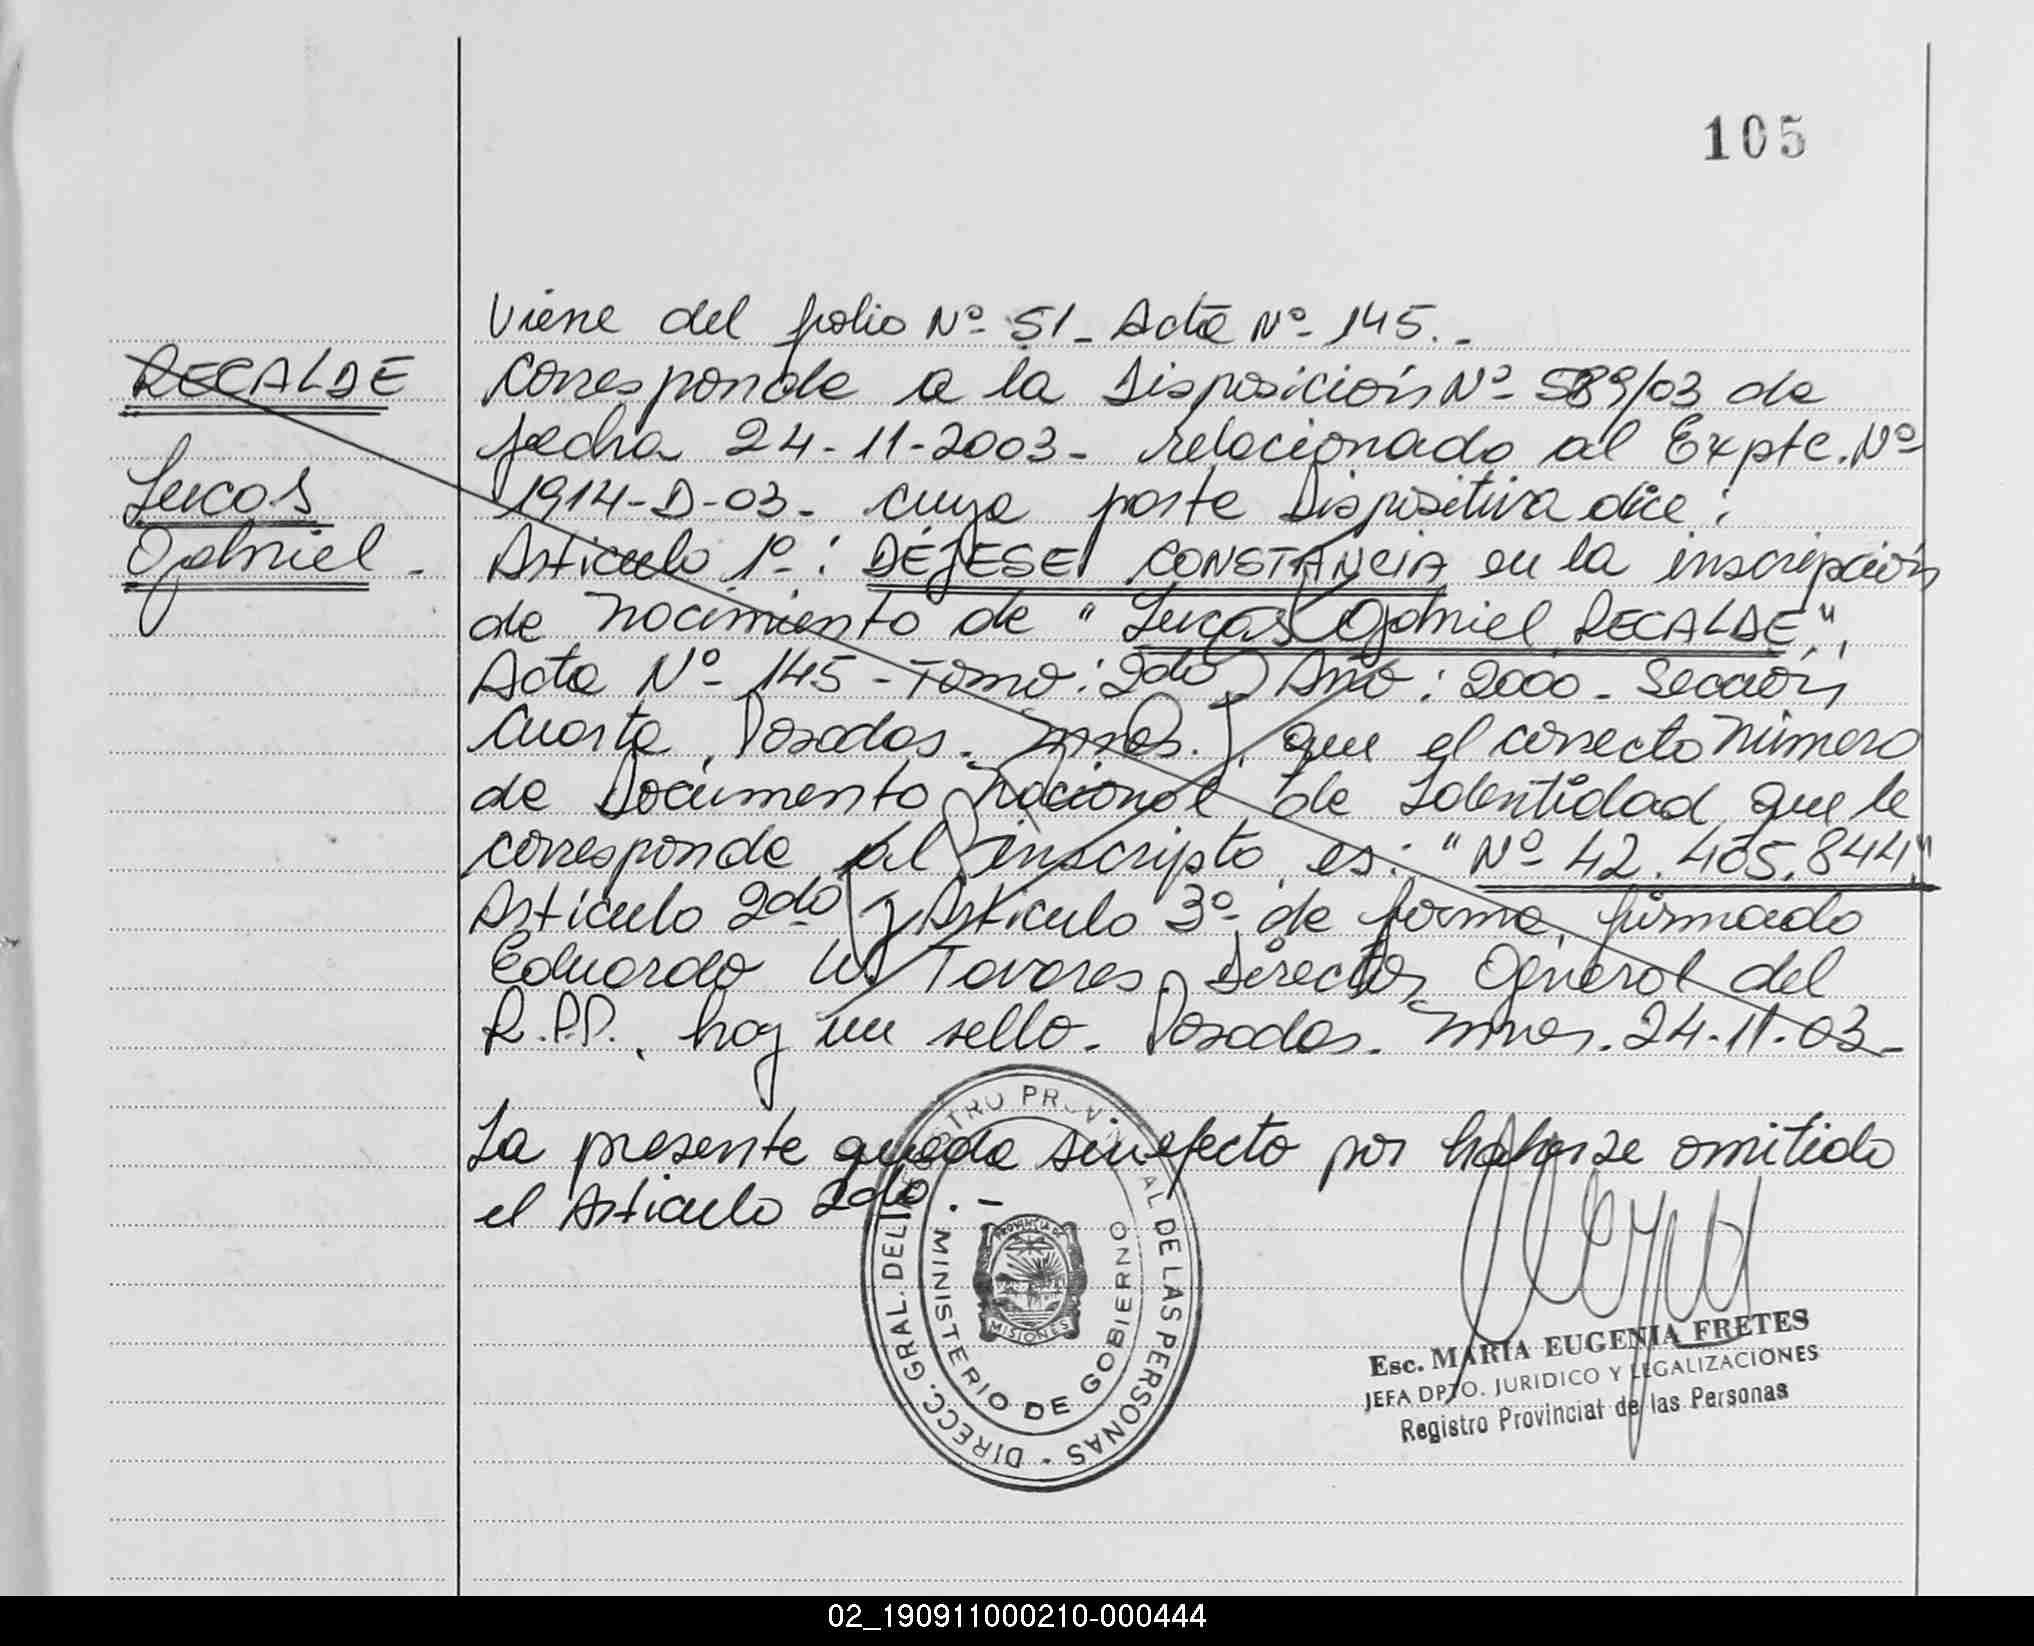 105
Viene del folio Nº 51 - Acta Nº 145.-
RECALDE
Lucas
Gabriel -
Corresponde a la Disposición Nº 589/03 de
fecha 24-11-2003- relacionado al Expte. Nº
1914-D-03- cuya parte Dispositiva dice:
Articulo 1º: DÉJESE CONSTANCIA en la inscripción
de nacimiento de "Lucas Gabriel RECALDE",
Acta Nº 145 - Tomo: 2do, Año: 2000 - Sección
Cuarta, Posadas. Mnes., que el correcto número
de Documento Nacional de Identidad que le
corresponde al inscripto es: "Nº 42.405.844"
Articulo 2do y Articulo 3º de forma, firmado
Eduardo W. Tavares Director General del
R.P.P., hay un sello. Posadas. Mnes. 24-11-03-
La presente queda sin efecto por haberse omitido
el Articulo 2do.-
DIRECC. GRAL. DEL REGISTRO PROVINCIAL DE LAS PERSONAS
MINISTERIO DE GOBIERNO
PROVINCIA DE
MISIONES
Esc. MARIA EUGENIA FRETES
JEFA DPTO. JURIDICO Y LEGALIZACIONES
Registro Provincial de las Personas
02_190911000210-000444